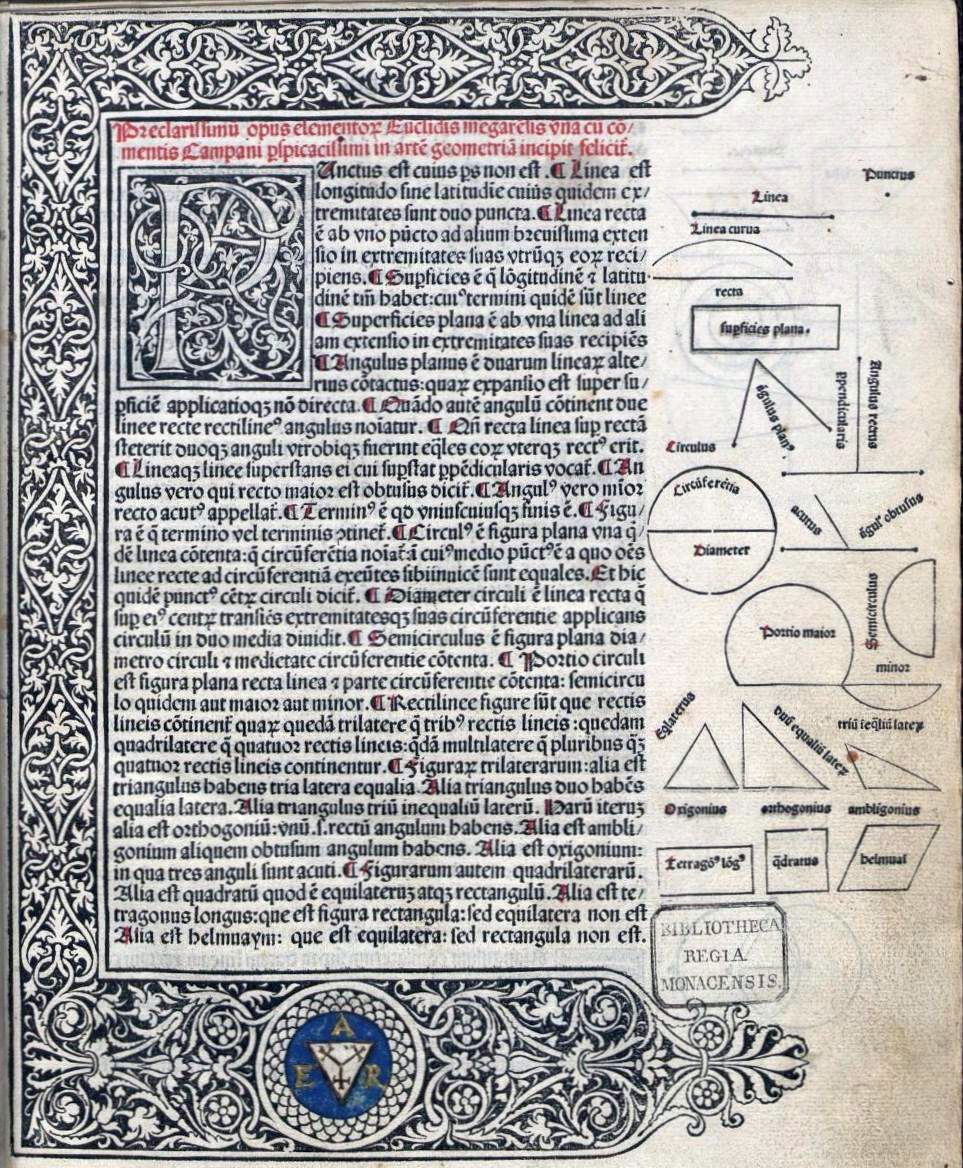 Preclarissimū opus elementoꝝ Euclidis megarēsis vna cū cō/
mentis Campani pspicacissimi in artē geometriā incipit felicit̄.
PUnctus est cuius ps non est. ¶ Linea est
longitudo sine latitudie cuius quidem ex/
tremitates sunt duo puncta. ¶ Linea recta
ē ab vno pūcto ad alium breuissima exten
sio in extremitates suas vtrūqꝫ eoꝝ reci/
piens. ¶ Supficies ē q̄ lōgitudinē ⁊ latitu
dinē tm̄ habet: cuiꝰ termini quidē sūt linee
¶ Superficies plana ē ab vna linea ad ali
am extensio in extremitates suas recipiēs
¶ Angulus planus ē duarum lineaꝝ alte/
rius cōtactus: quaꝝ expansio est super su/
pficiē applicatioqꝫ nō directa. ¶ Quādo autē angulū cōtinent due
linee recte rectilineꝰ angulus noiatur. ¶ Qn̄ recta linea sup rectā
steterit duoqꝫ anguli vtrobiqꝫ fuerint eq̄les eoꝝ vterqꝫ rectꝰ erit.
¶ Lineaqꝫ linee superstans ei cui supstat ppēdicularis vocat̄. ¶ An
gulus vero qui recto maior est obtusus dicit̄. ¶ Angulꝰ vero mīor
recto acutꝰ appellat̄. ¶ Terminꝰ ē qd vniuscuiusqꝫ finis ē. ¶ Figu/
ra ē q̄ termino vel terminis ꝯtinet̄. ¶ Circulꝰ ē figura plana vna q/
dē linea cōtenta: q̄ circūferētia noiat̄: ī cuiꝰ medio pūctꝰ ē a quo oēs
linee recte ad circūferentiā exeūtes sibiinuicē sunt equales. Et hic
quidē punctꝰ cētꝝ circuli dicit̄. ¶ Diameter circuli ē linea recta q̄
sup eiꝰ centꝝ transiēs extremitatesqꝫ suas circūferentie applicans
circulū in duo media diuidit. ¶ Semicirculus ē figura plana dia/
metro circuli ⁊ medietate circūferentie cōtenta. ¶ Portio circuli
est figura plana recta linea ⁊ parte circūferentie cōtenta: semicircu
lo quidem aut maior aut minor. ¶ Rectilinee figure sūt que rectis
lineis cōtinent̄ quaꝝ quedā trilatere q̄ tribꝰ rectis lineis: quedam
quadrilatere q̄ quatuor rectis lineis: qdā multilatere q̄ pluribus qꝫ
quatuor rectis lineis continentur. ¶ Figuraꝝ trilaterarum: alia est
triangulus habens tria latera equalia. Alia triangulus duo habēs
equalia latera. Alia triangulus triū inequaliū laterū. Harū iteruꝫ
alia est orthogoniū: vnū .s. rectū angulum habens. Alia est ambli/
gonium aliquem obtusum angulum habens. Alia est oxigonium:
in qua tres anguli sunt acuti. ¶ Figurarum autem quadrilaterarū.
Alia est quadratū quod ē equilateruꝫ atqꝫ rectangulū. Alia est te/
tragonus longus: que est figura rectangula: sed equilatera non est
Alia est helmuaym: que est equilatera: sed rectangula non est.
Punctus
Linea
Linea curua
recta
supficies plana.
āgulus planꝰ
ppendicularis
Angulus rectus
Circulus
Circūferētia
Diameter
acutus
āgulꝰ obtusus
Portio maior
Semicirculus
minor
Eqlaterus
duū equaliū lateꝝ
triū īeq̄liū lateꝝ
Oxigonius
orthogonius
ambligonius
Tetragōꝰ lōgꝰ
q̄dratus
helmuaī
BIBLIOTHECA
REGIA
MONACENSIS.
A
E R